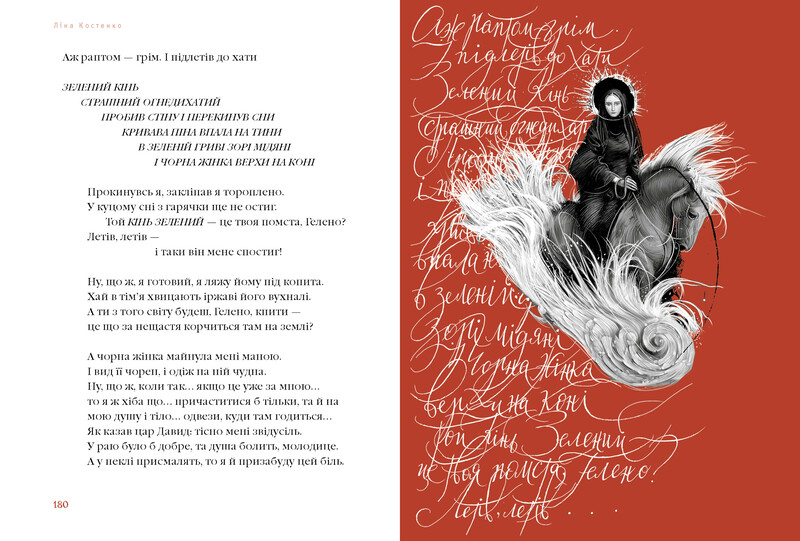 Ліна Костенко
Аж раптом — грім. І підлетів до хати
ЗЕЛЕНИЙ КІНЬ
СТРАШНИЙ ОГНЕДИХАТИЙ
ПРОБИВ СТІНУ І ПЕРЕКИНУВ СНИ
КРИВАВА ПІНА ВПАЛА НА ТИНИ
В ЗЕЛЕНІЙ ГРИВІ ЗОРІ МІДЯНІ
І ЧОРНА ЖІНКА ВЕРХИ НА КОНІ
Прокинувсь я, закліпав я тороплено.
У куцому сні з гарячки ще не остиг.
Той КІНЬ ЗЕЛЕНИЙ — це твоя помста, Гелено?
Летів, летів —
і таки він мене спостиг!
Ну, що ж, я готовий, я ляжу йому під копита.
Хай в тім’я хвицають іржаві його вухналі.
А ти з того світу будеш, Гелено, кпити —
це що за нещастя корчиться там на землі?
А чорна жінка майнула мені маною.
І вид її чорен, і одіж на ній чудна.
Ну, що ж, коли так... якщо це уже за мною...
то я ж хіба що... причаститися б тільки, та й на
мою душу і тіло... одвези, куди там годиться...
Як казав цар Давид: тісно мені звідусіль.
У раю було б добре, та душа болить, молодице.
А у пеклі присмалять, то я й призабуду цей біль.
180
Аж раптом грім.
І підлетів до хати
Зелений Кінь
страшний, огнедихат
впала н
в зеленій
Зорі мідяні
І Чорна Жінка
верхи на коні
Той Кінь Зелений
це твоя помста, Гелено?
Летів, летів . . .